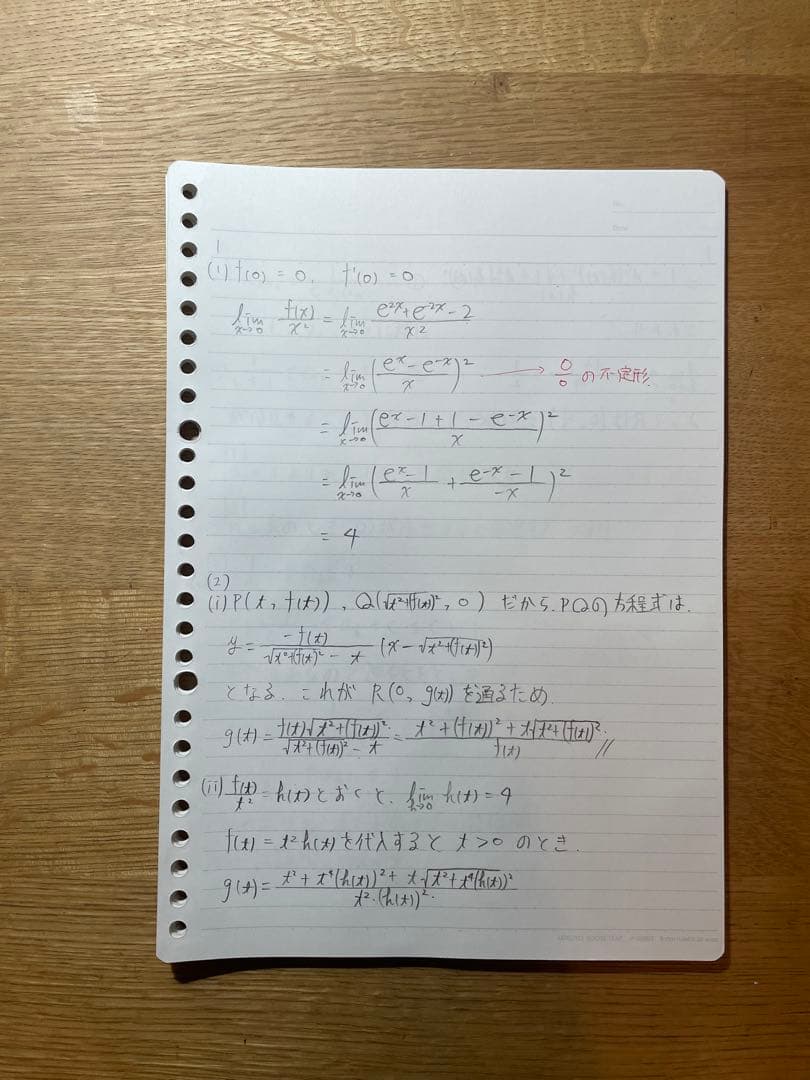 1
(1) f(0) = 0, f'(0) = 0
lim_{x→0} f(x)/x² = lim_{x→0} (e^{2x}+e^{-2x}-2)/x²
= lim_{x→0} ((e^x - e^{-x})/x)² → 0/0 の不定形.
= lim_{x→0} ((e^x - 1 + 1 - e^{-x})/x)²
= lim_{x→0} ((e^x - 1)/x + (e^{-x} - 1)/(-x))²
= 4
(2)
(i) P(t, f(t)), Q(√(t²+(f(t))²), 0) だから. PQの方程式は.
y = -f(t)/(√(t²+(f(t))²) - t) (x - √(t²+(f(t))²))
となる. これが R(0, g(t)) を通るため.
g(t) = f(t)√(t²+(f(t))²)/(√(t²+(f(t))²) - t) = (t² + (f(t))² + t√(t²+(f(t))²))/f(t) //
(ii) f(t)/t² = h(t) とおくと, lim_{h→0} h(t) = 4
f(t) = t² h(t) を代入すると t > 0 のとき.
g(t) = (t² + t⁴(h(t))² + t√(t²+t⁴(h(t))²))/(t²・(h(t))²)